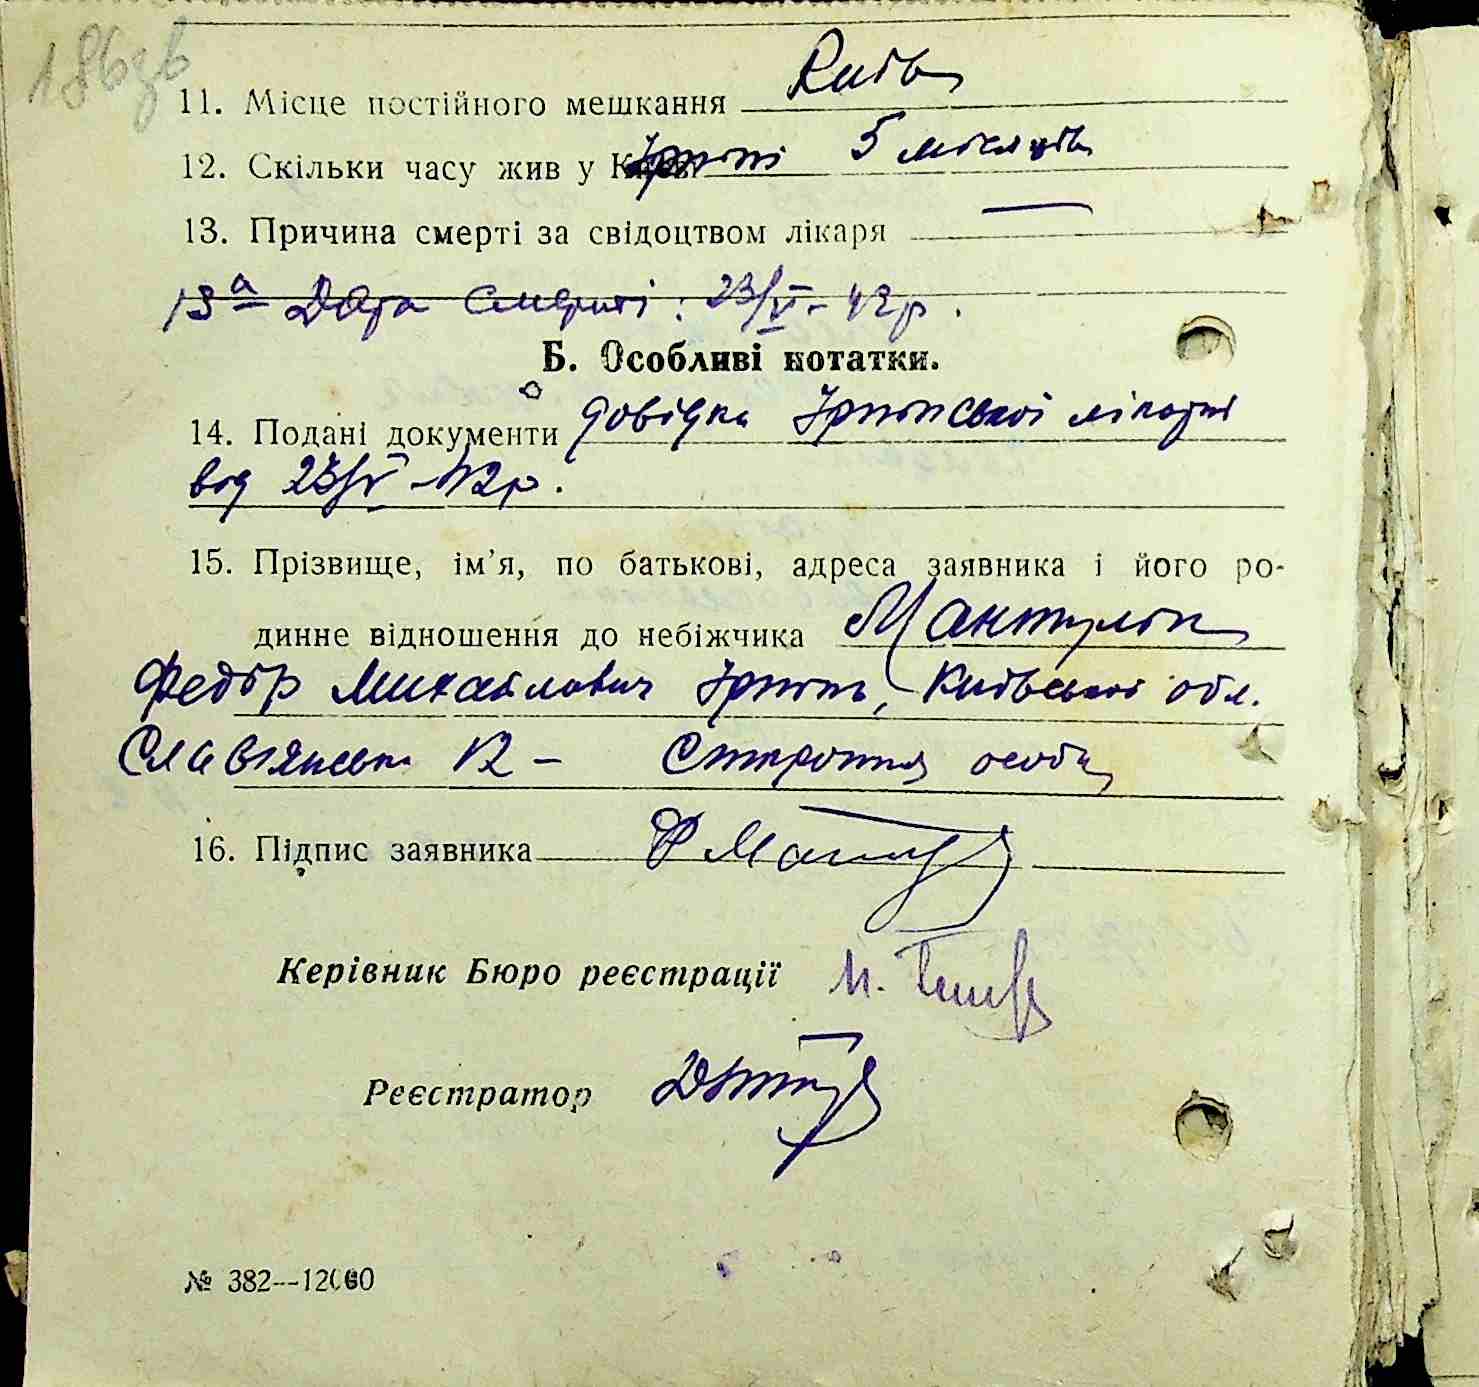 186зв
11. Місце постійного мешкання Київ
12. Скільки часу жив у Ірпіні 5 місяців
13. Причина смерті за свідоцтвом лікаря —
13а Дата смерті: 23/V - 42р.
Б. Особливі нотатки.
14. Подані документи довідка Ірпінської лікарні
від 23/V - 42р.
15. Прізвище, ім'я, по батькові, адреса заявника і його ро-
динне відношення до небіжчика Мантуляк
Федір Михайлович Ірпінь, Київської обл.
Слав'янська 12 - Стороння особа
16. Підпис заявника
Керівник Бюро реєстрації
Реєстратор
№ 382--12000